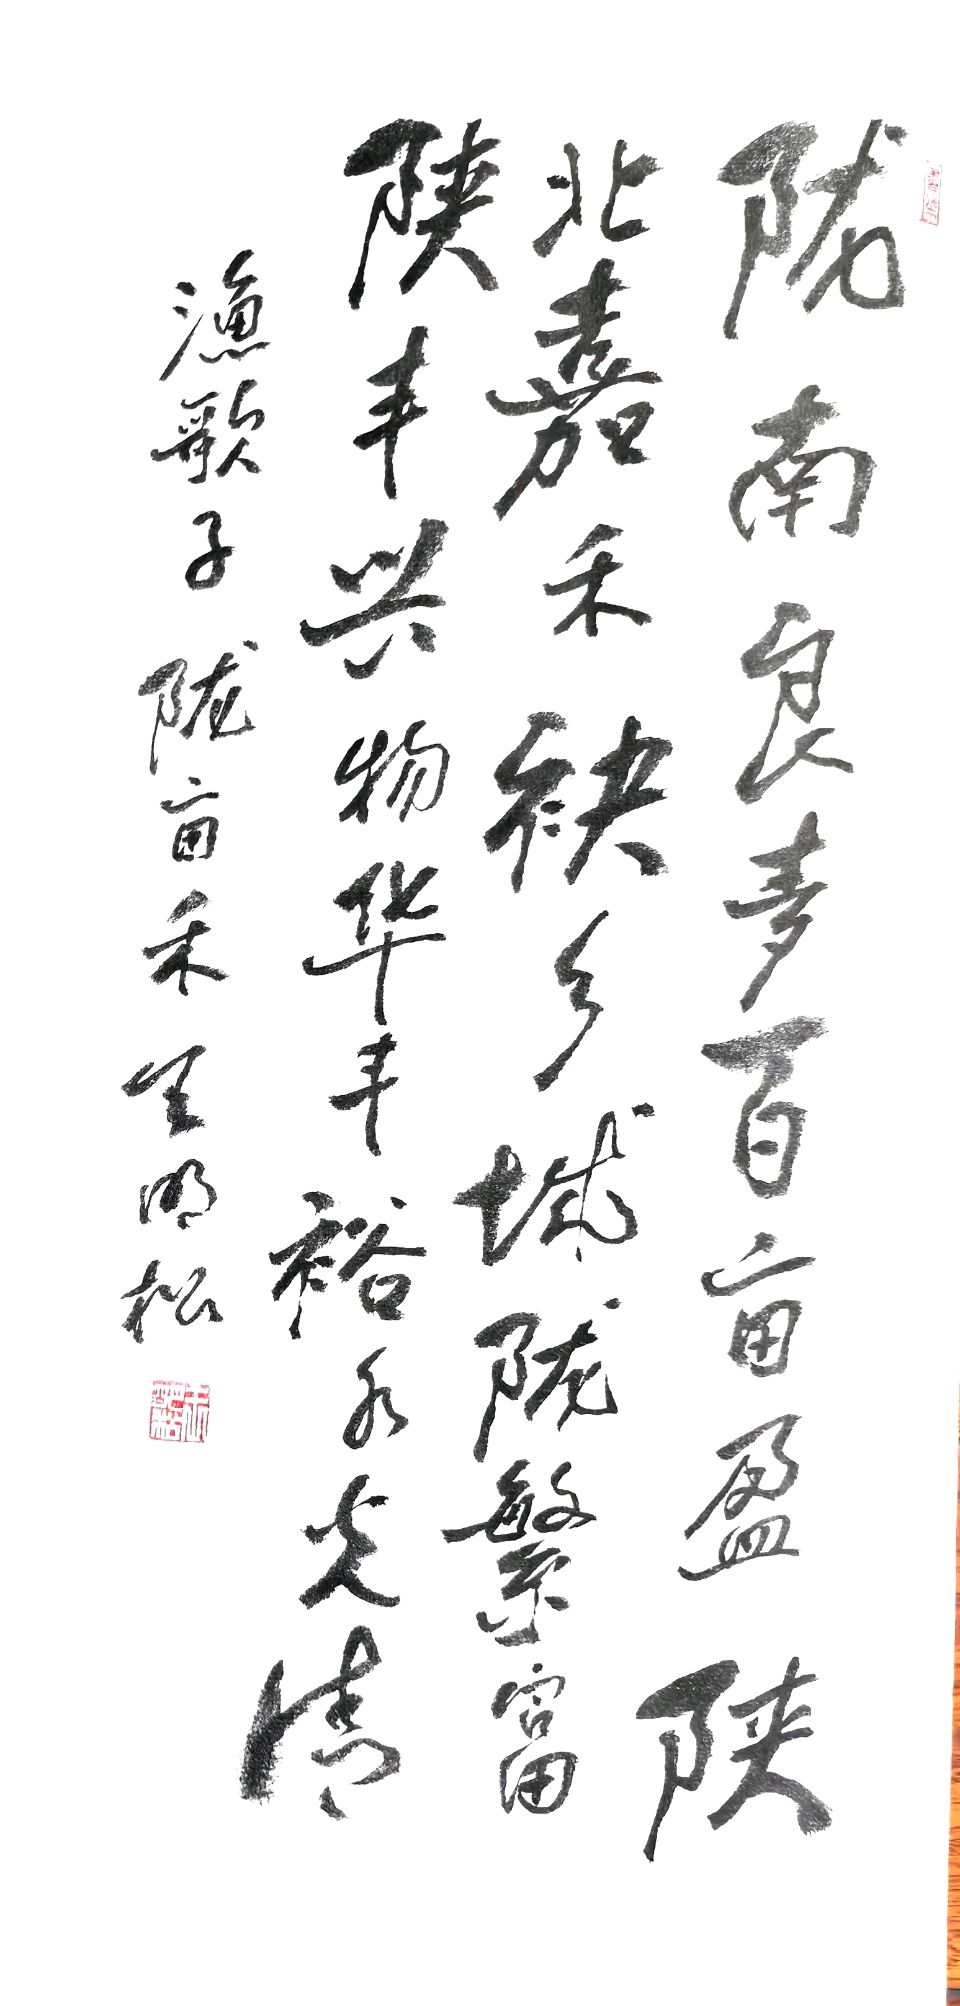 陇南良麦百亩盈陕
北嘉禾袂乡城陇繁富
陕丰兴物华丰裕水光清
渔歌子 陇亩禾 王明松